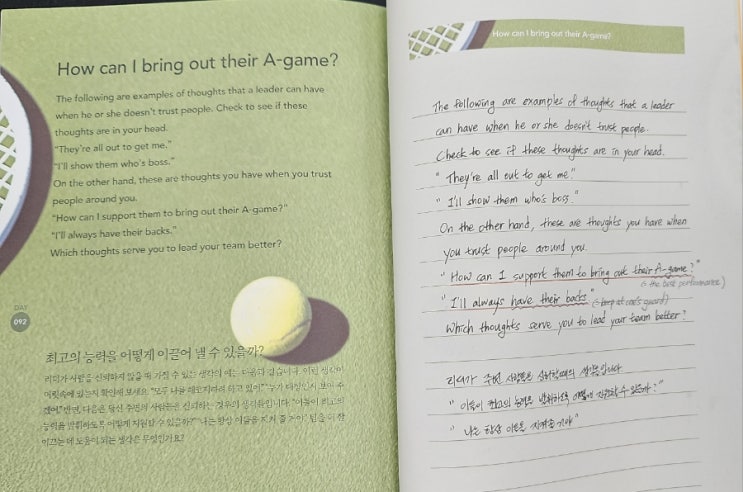 How can I bring out their A-game?
The following are examples of thoughts that a leader can have
when he or she doesn't trust people. Check to see if these
thoughts are in your head.
"They're all out to get me."
"I'll show them who's boss."
On the other hand, these are thoughts you have when you trust
people around you.
"How can I support them to bring out their A-game?"
"I'll always have their backs."
Which thoughts serve you to lead your team better?
DAY
092
최고의 능력을 어떻게 이끌어 낼 수 있을까?
리더가 사람을 신뢰하지 않을 때 가질 수 있는 생각의 예는 다음과 같습니다. 이런 생각이
머릿속에 있는지 확인해 보세요. "모두 나를 해코지하려 하고 있어." "누가 대장인지 보여 주
겠어." 반면, 다음은 당신 주변의 사람들을 신뢰하는 경우의 생각들입니다. "이들이 최고의
능력을 발휘하도록 어떻게 지원할 수 있을까?" "나는 항상 이들을 지켜 줄 거야." 팀을 더 잘
이끄는 데 도움이 되는 생각은 무엇인가요?
How can I bring out their A-game?
The following are examples of thoughts that a leader
can have when he or she doesn't trust people.
Check to see if these thoughts are in your head.
"They're all out to get me."
"I'll show them who's boss."
On the other hand, these are thoughts you have when
you trust people around you.
"How can I support them to bring out their A-game?"
the best performance)
"I'll always have their backs"
Which thoughts serve you to lead your team better?
리더가 주변 사람들을 생각들입니다
"이들이 최고의 능력을 발휘하도록 어떻게 지원할 수 있을까?"
"나는 항상 이들을 지켜줄 거야"